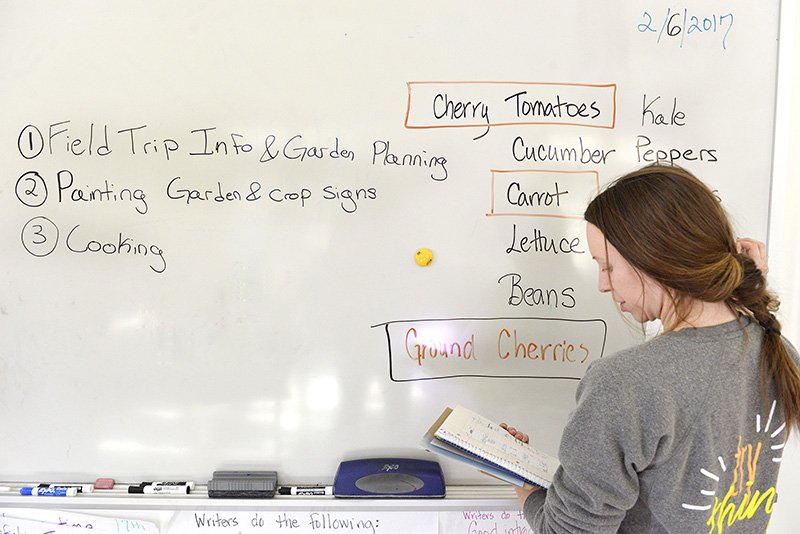 2/6/2017
① Field Trip Info & Garden Planning
② Painting Garden & crop signs
③ Cooking
Cherry Tomatoes Kale
Cucumber Peppers
Carrot
Lettuce
Beans
Ground Cherries
EXPO
Writers do the following:
Writers do